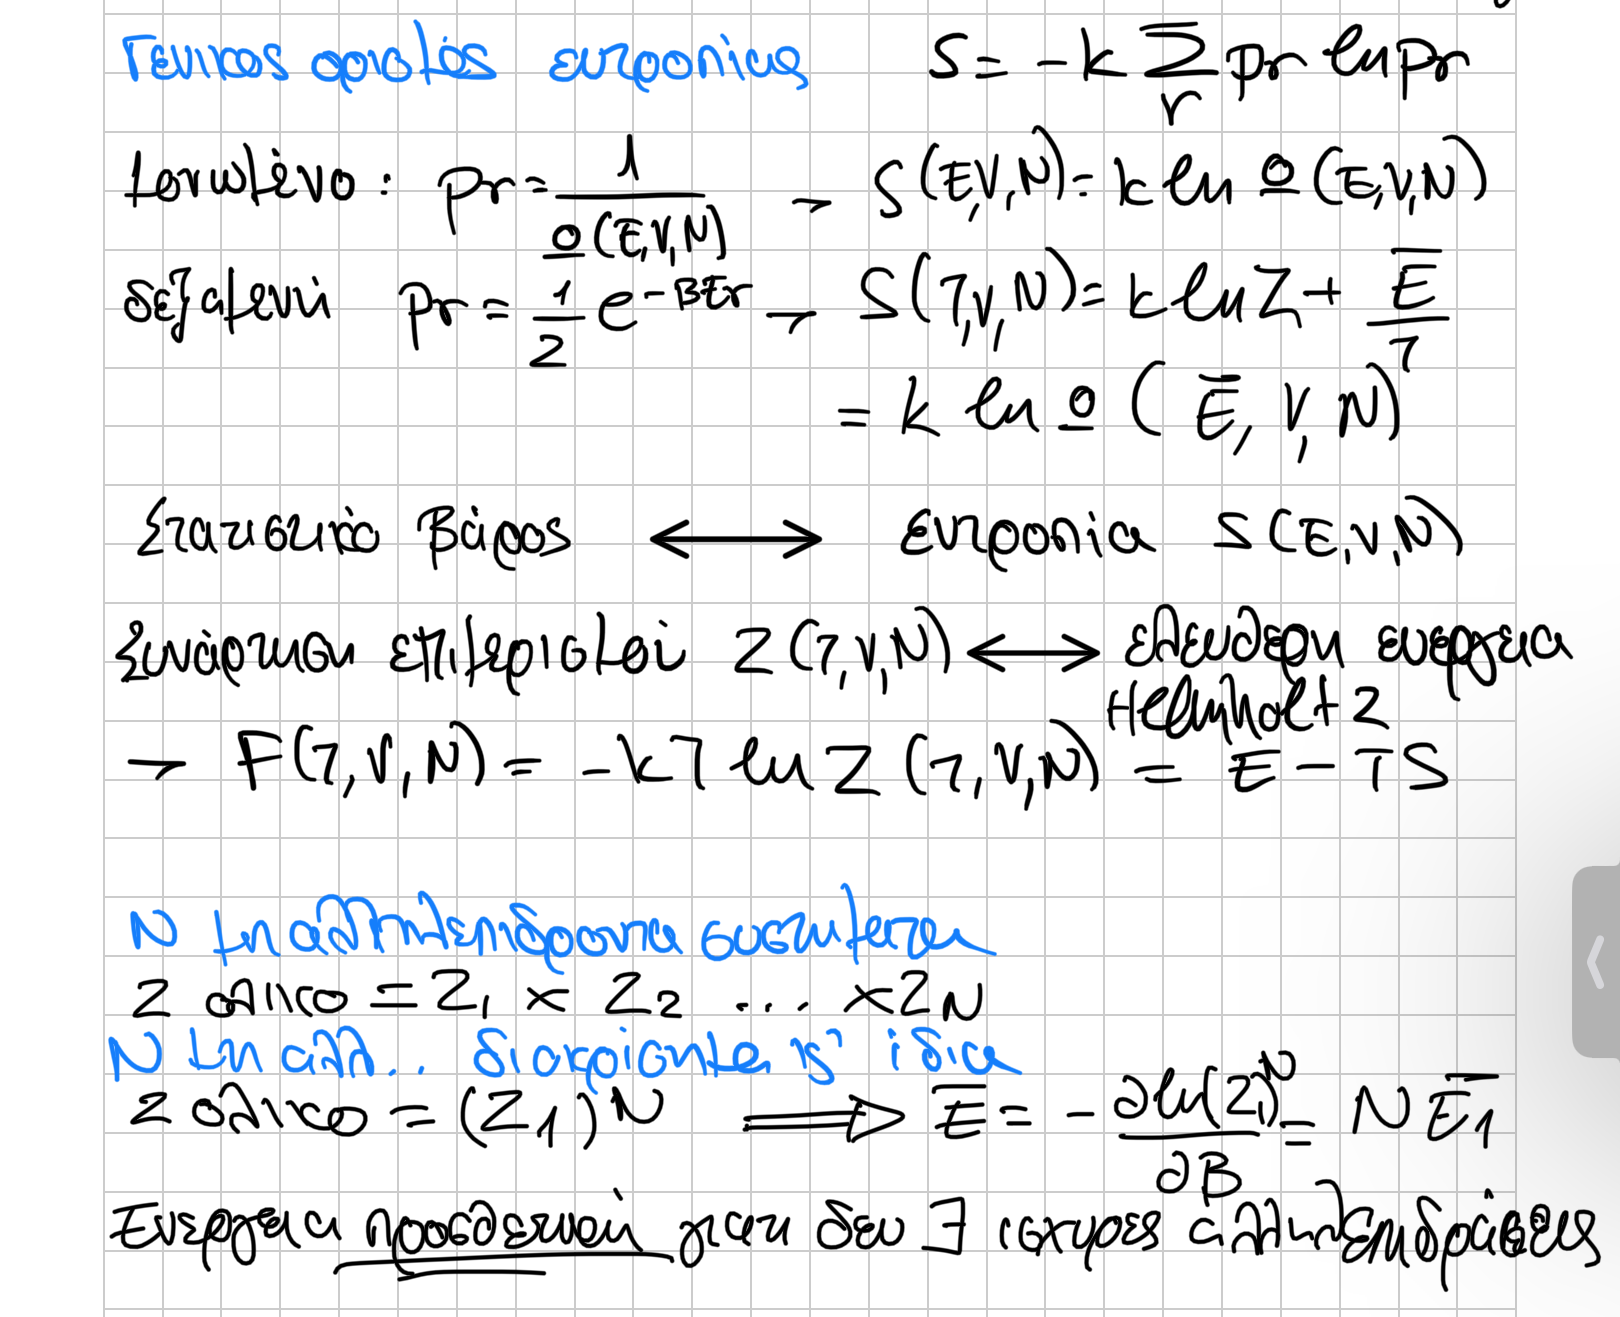 Γενικος ορισμός εντροπίας S = -k Σ_r pr ln pr
μονωμένο: pr = 1/Ω(E,V,N) → S(E,V,N) = k ln Ω(E,V,N)
δεξαμενή pr = 1/Z e^{-βEr} → S(T,V,N) = k ln Z + Ē/T
= k ln Ω (Ē, V, N)
Στατιστικό Βάρος ⟷ εντροπία S(E,V,N)
Συνάρτηση επιμερισμού Z(T,V,N) ⟷ ελευθερη ενεργεια
Helmholtz
→ F(T,V,N) = -kT ln Z (T,V,N) = E - TS
N μη αλληλεπιδρονια συστηματα
Z ολικο = Z₁ × Z₂ ... × Z_N
N μη αλλ.. διακρίσιμα, ίδια
Z ολικο = (Z₁)^N ⟹ Ē = - ∂ln(Z₁)^N/∂β = N Ē₁
Ενεργεια προσθετική γιατι δεν ∃ ισχυρες αλληλεπιδράσεις